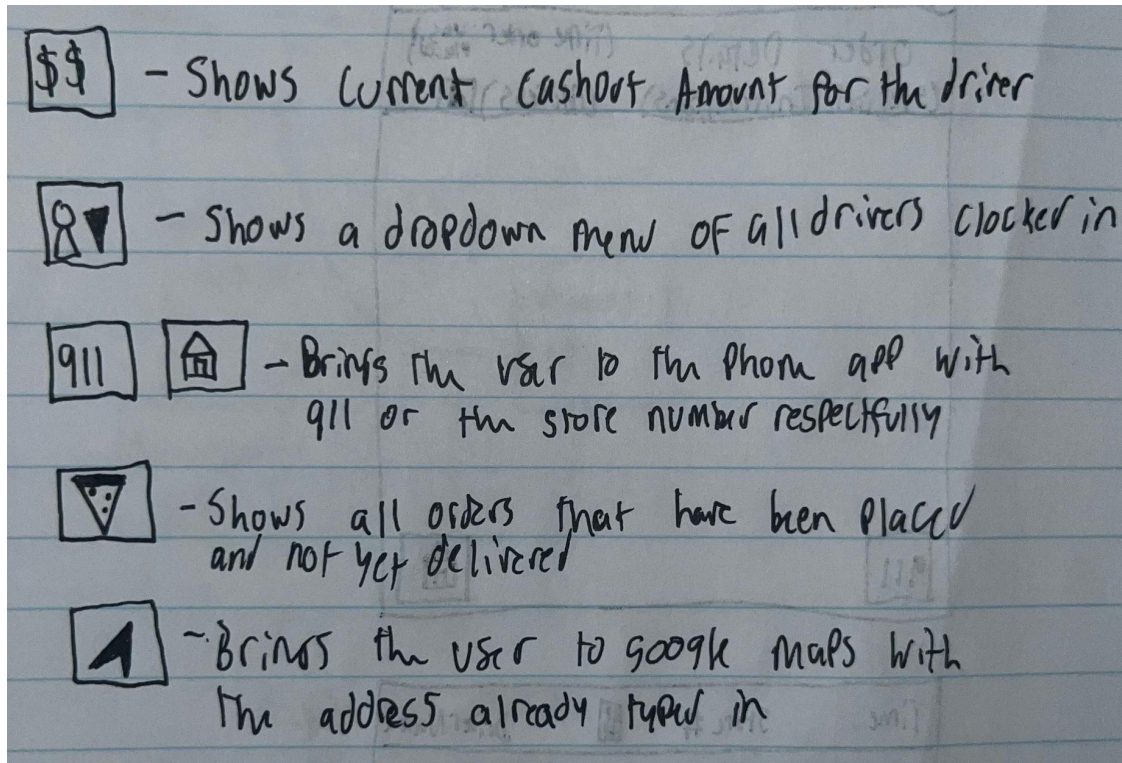 $$ - Shows Current Cashout Amount for the driver
- Shows a dropdown menu OF all drivers clocked in
911 - Brings the user to the phone app with
911 or the store number respectfully
- Shows all orders that have been placed
and not yet delivered
- Brings the user to google maps with
The address already typed in